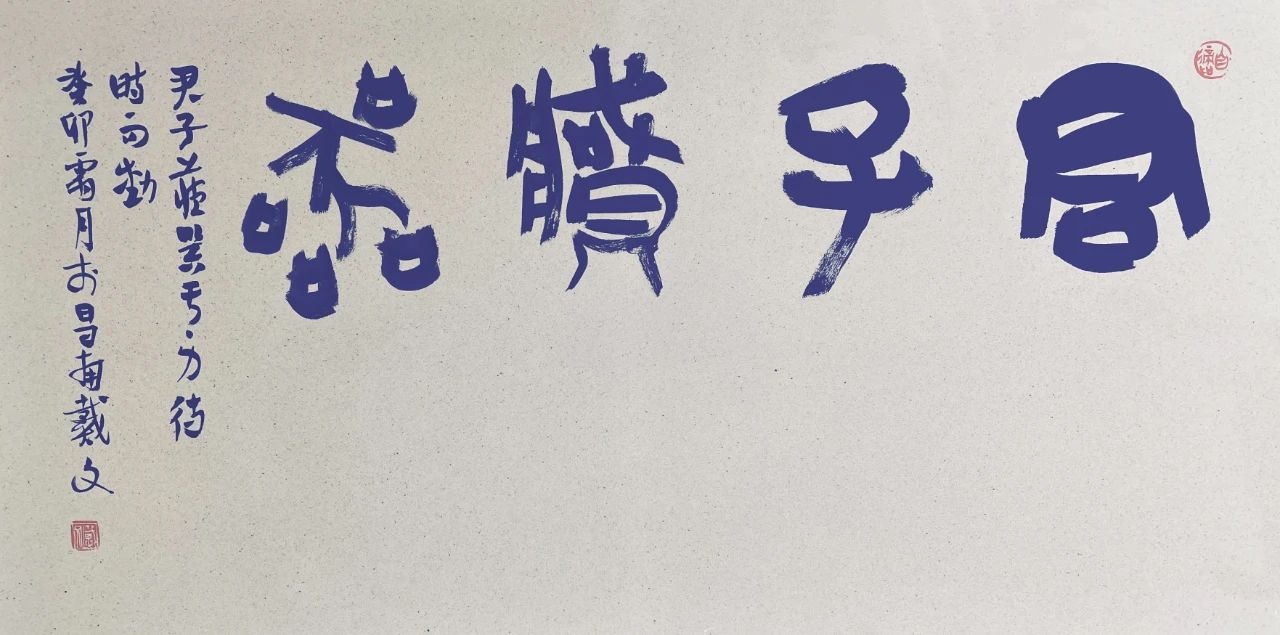 君子藏器
君子藏器于身待
時而動
癸卯霜月於昌南戴文